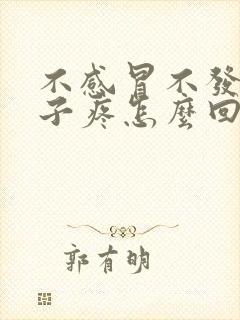 不感冒不發
子疼怎麼回
郭有明